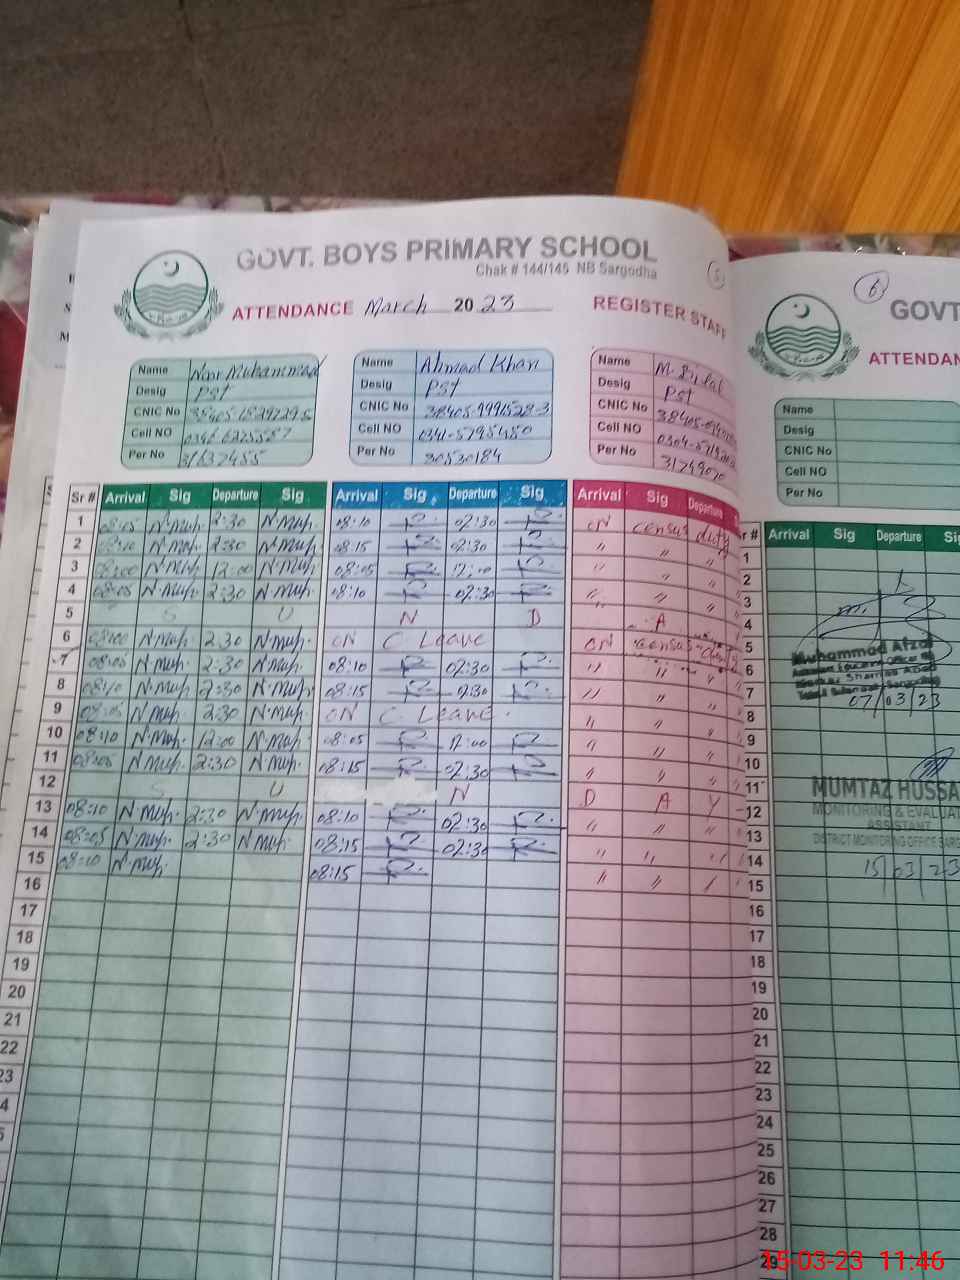 GOVT. BOYS PRIMARY SCHOOL
Chak # 144/145 NB Sargodha
ATTENDANCE March 2023 REGISTER STAFF
5
Name Noor Muhammad
Desig Pst
CNIC No
Cell NO
Per No 31637455
Name Ahmad Khan
Desig Pst
CNIC No 38405-9991528-3
Cell NO 0341-5795480
Per No 30530184
Name M. Bilal
Desig Pst
CNIC No
Cell NO
Per No
Sr # Arrival Sig Departure Sig Arrival Sig Departure Sig Arrival Sig Departure
1 08:05 N.Muh. 2:30 N.Muh. 08:10 02:30 ON census duty
2 N.Muh. 2:30 N.Muh. 08:15 02:30 " " "
3 08:00 N.Muh. 12:00 N.Muh. 08:05 12:00 " " "
4 08:05 N.Muh. 2:30 N.Muh. 08:10 02:30 " " "
5 S U N D A
6 08:00 N.Muh. 2:30 N.Muh. ON C. Leave ON census duty
7 08:05 N.Muh. 2:30 N.Muh. 08:10 02:30 " " "
8 08:10 N.Muh. 2:30 N.Muh. 08:15 02:30 " " "
9 08:05 N.Muh. 2:30 N.Muh. ON C. Leave. " " "
10 08:10 N.Muh. 12:00 N.Muh. 08:05 12:00 " " "
11 08:05 N.Muh. 2:30 N.Muh. 08:15 02:30 " " "
12 S U N D A Y
13 08:10 N.Muh. 2:30 N.Muh. 08:10 02:30 " " "
14 08:05 N.Muh. 2:30 N.Muh. 08:15 02:30 " " "
15 08:10 N.Muh. 08:15 " "
16
17
18
19
20
21
22
23
6
GOVT
ATTENDAN
Name
Desig
CNIC No
Cell NO
Per No
Arrival Sig Departure
1
2
3
4
5
6
7
8
9
10
11
12
13
14
15
16
17
18
19
20
21
22
23
24
25
26
27
28
Muhammad Afzal
07/03/23
MUMTAZ HUSSA
MONITORING & EVALUAT
ASSISTANT
DISTRICT MONITORING OFFICE SARG
15/03/23
15-03-23 11:46